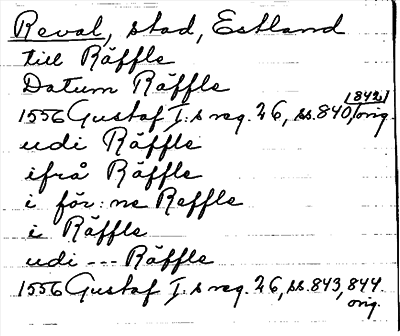 Reval, stad, Estland
till Räffle
Datum Räffle
1556 Gustaf I:s reg. 26, ss. 840, 842, orig.
udi Räffle
ifrå Räffle
i för:ne Reffle
i Räffle
udi --- Räffle
1556 Gustaf I:s reg. 26, ss. 843, 844.
orig.